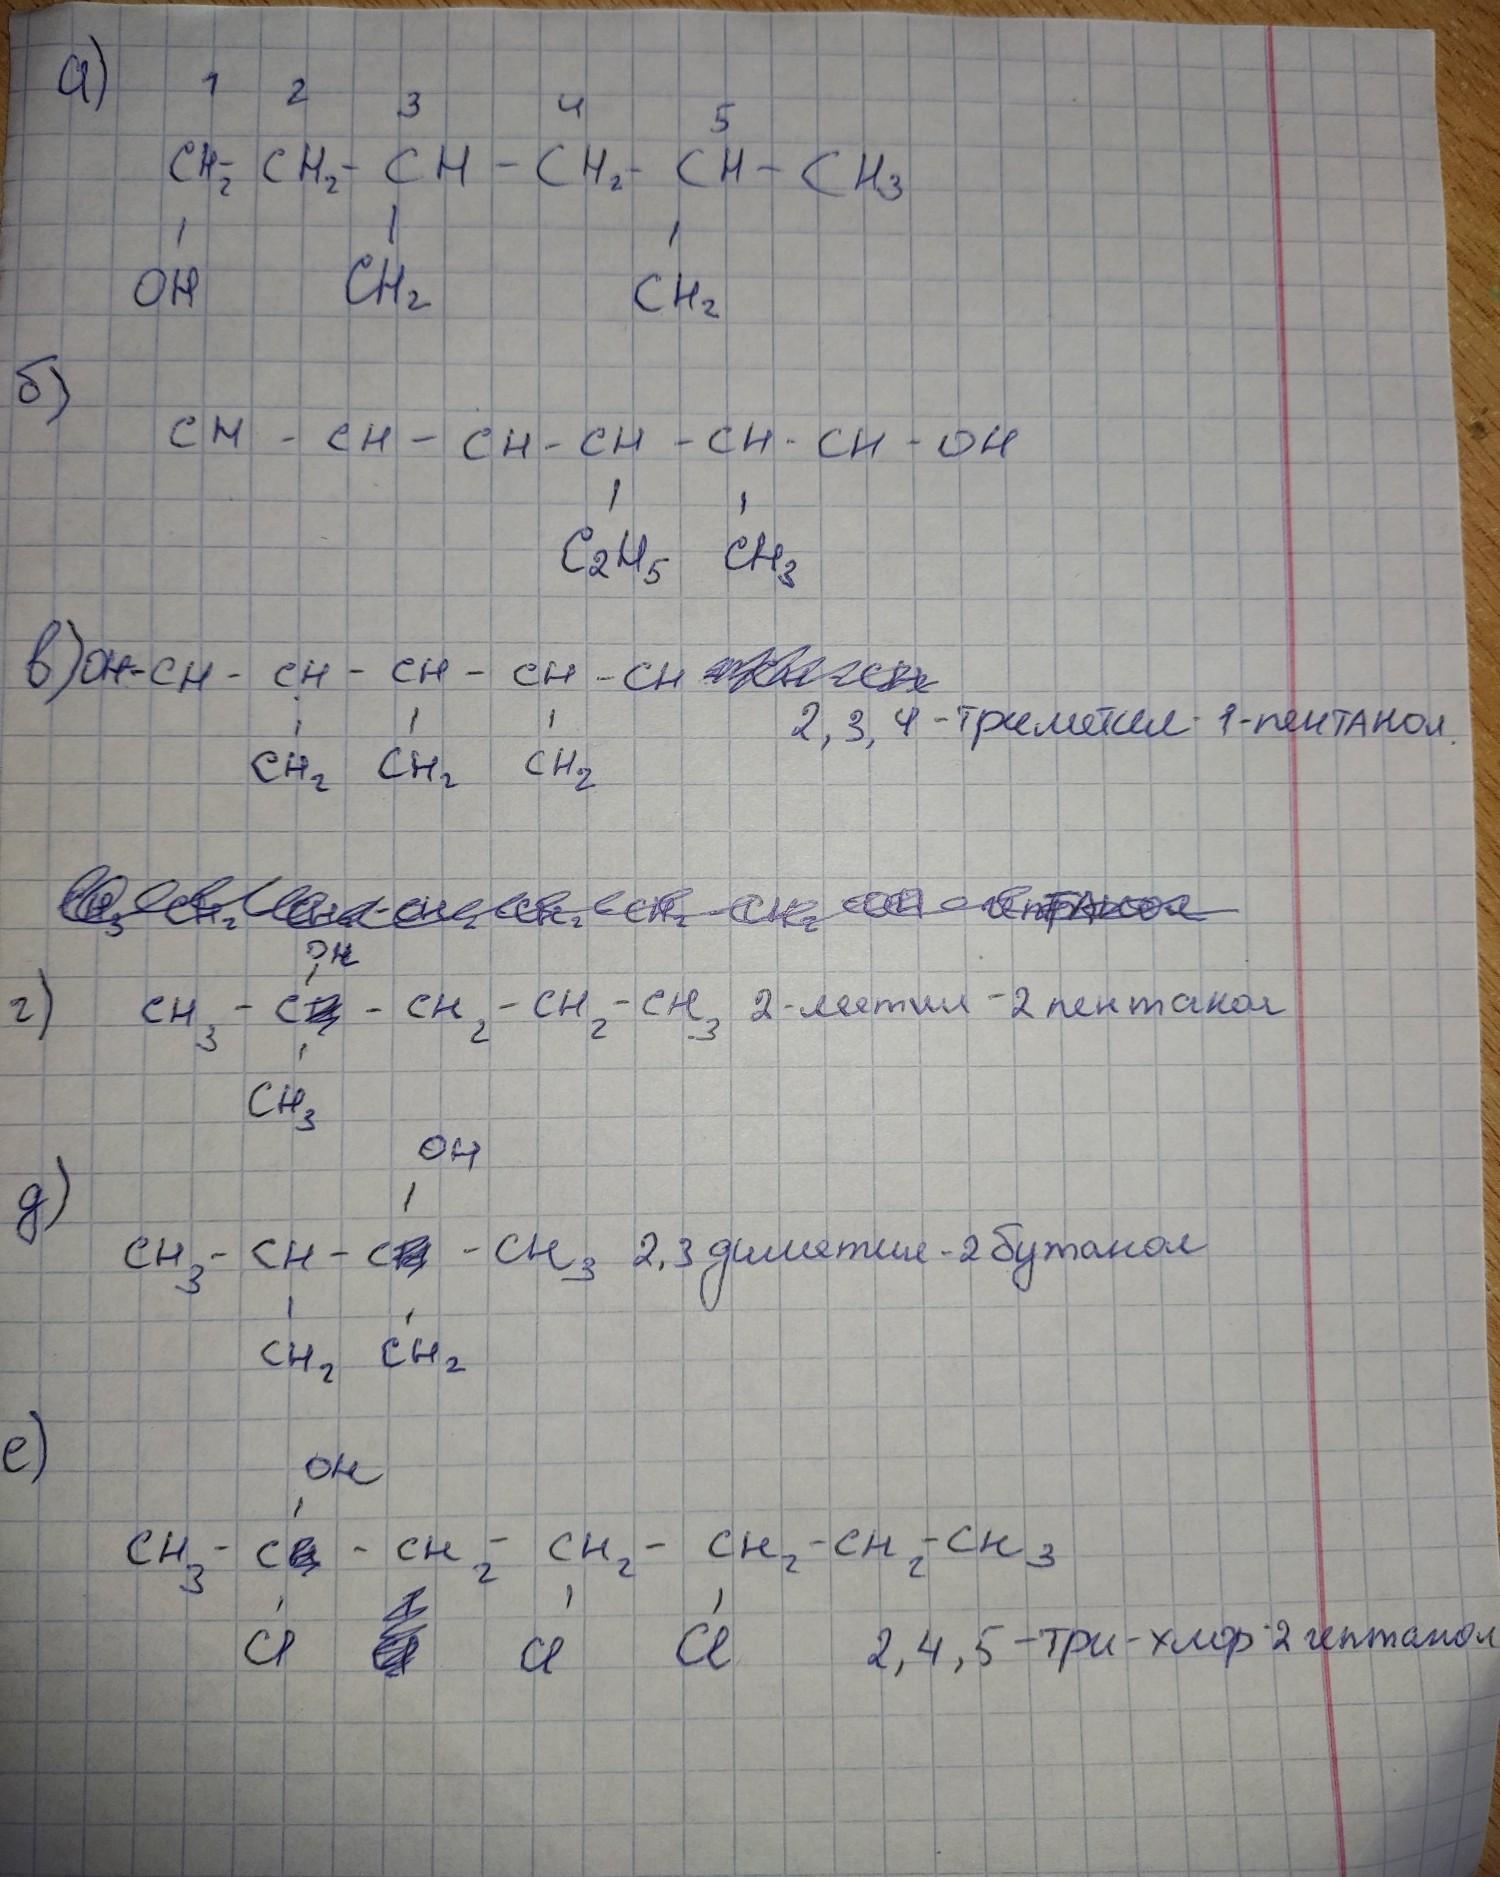 а)
1 2 3 4 5
CH2 - CH2 - CH - CH2 - CH - CH3
OH CH2 CH2
б)
CH - CH - CH - CH - CH - CH - OH
C2H5 CH3
в) OH - CH - CH - CH - CH - CH
2, 3, 4 - триметил - 1 - пентанол.
CH2 CH2 CH2
OH
г) CH3 - C - CH2 - CH2 - CH3 2-метил - 2 пентанол
CH3
OH
д)
CH3 - CH - C - CH3 2,3 диметил - 2 бутанол
CH2 CH2
е)
OH
CH3 - C - CH2 - CH2 - CH2 - CH2 - CH3
Cl Cl Cl 2, 4, 5 - три - хлор - 2 гептанол